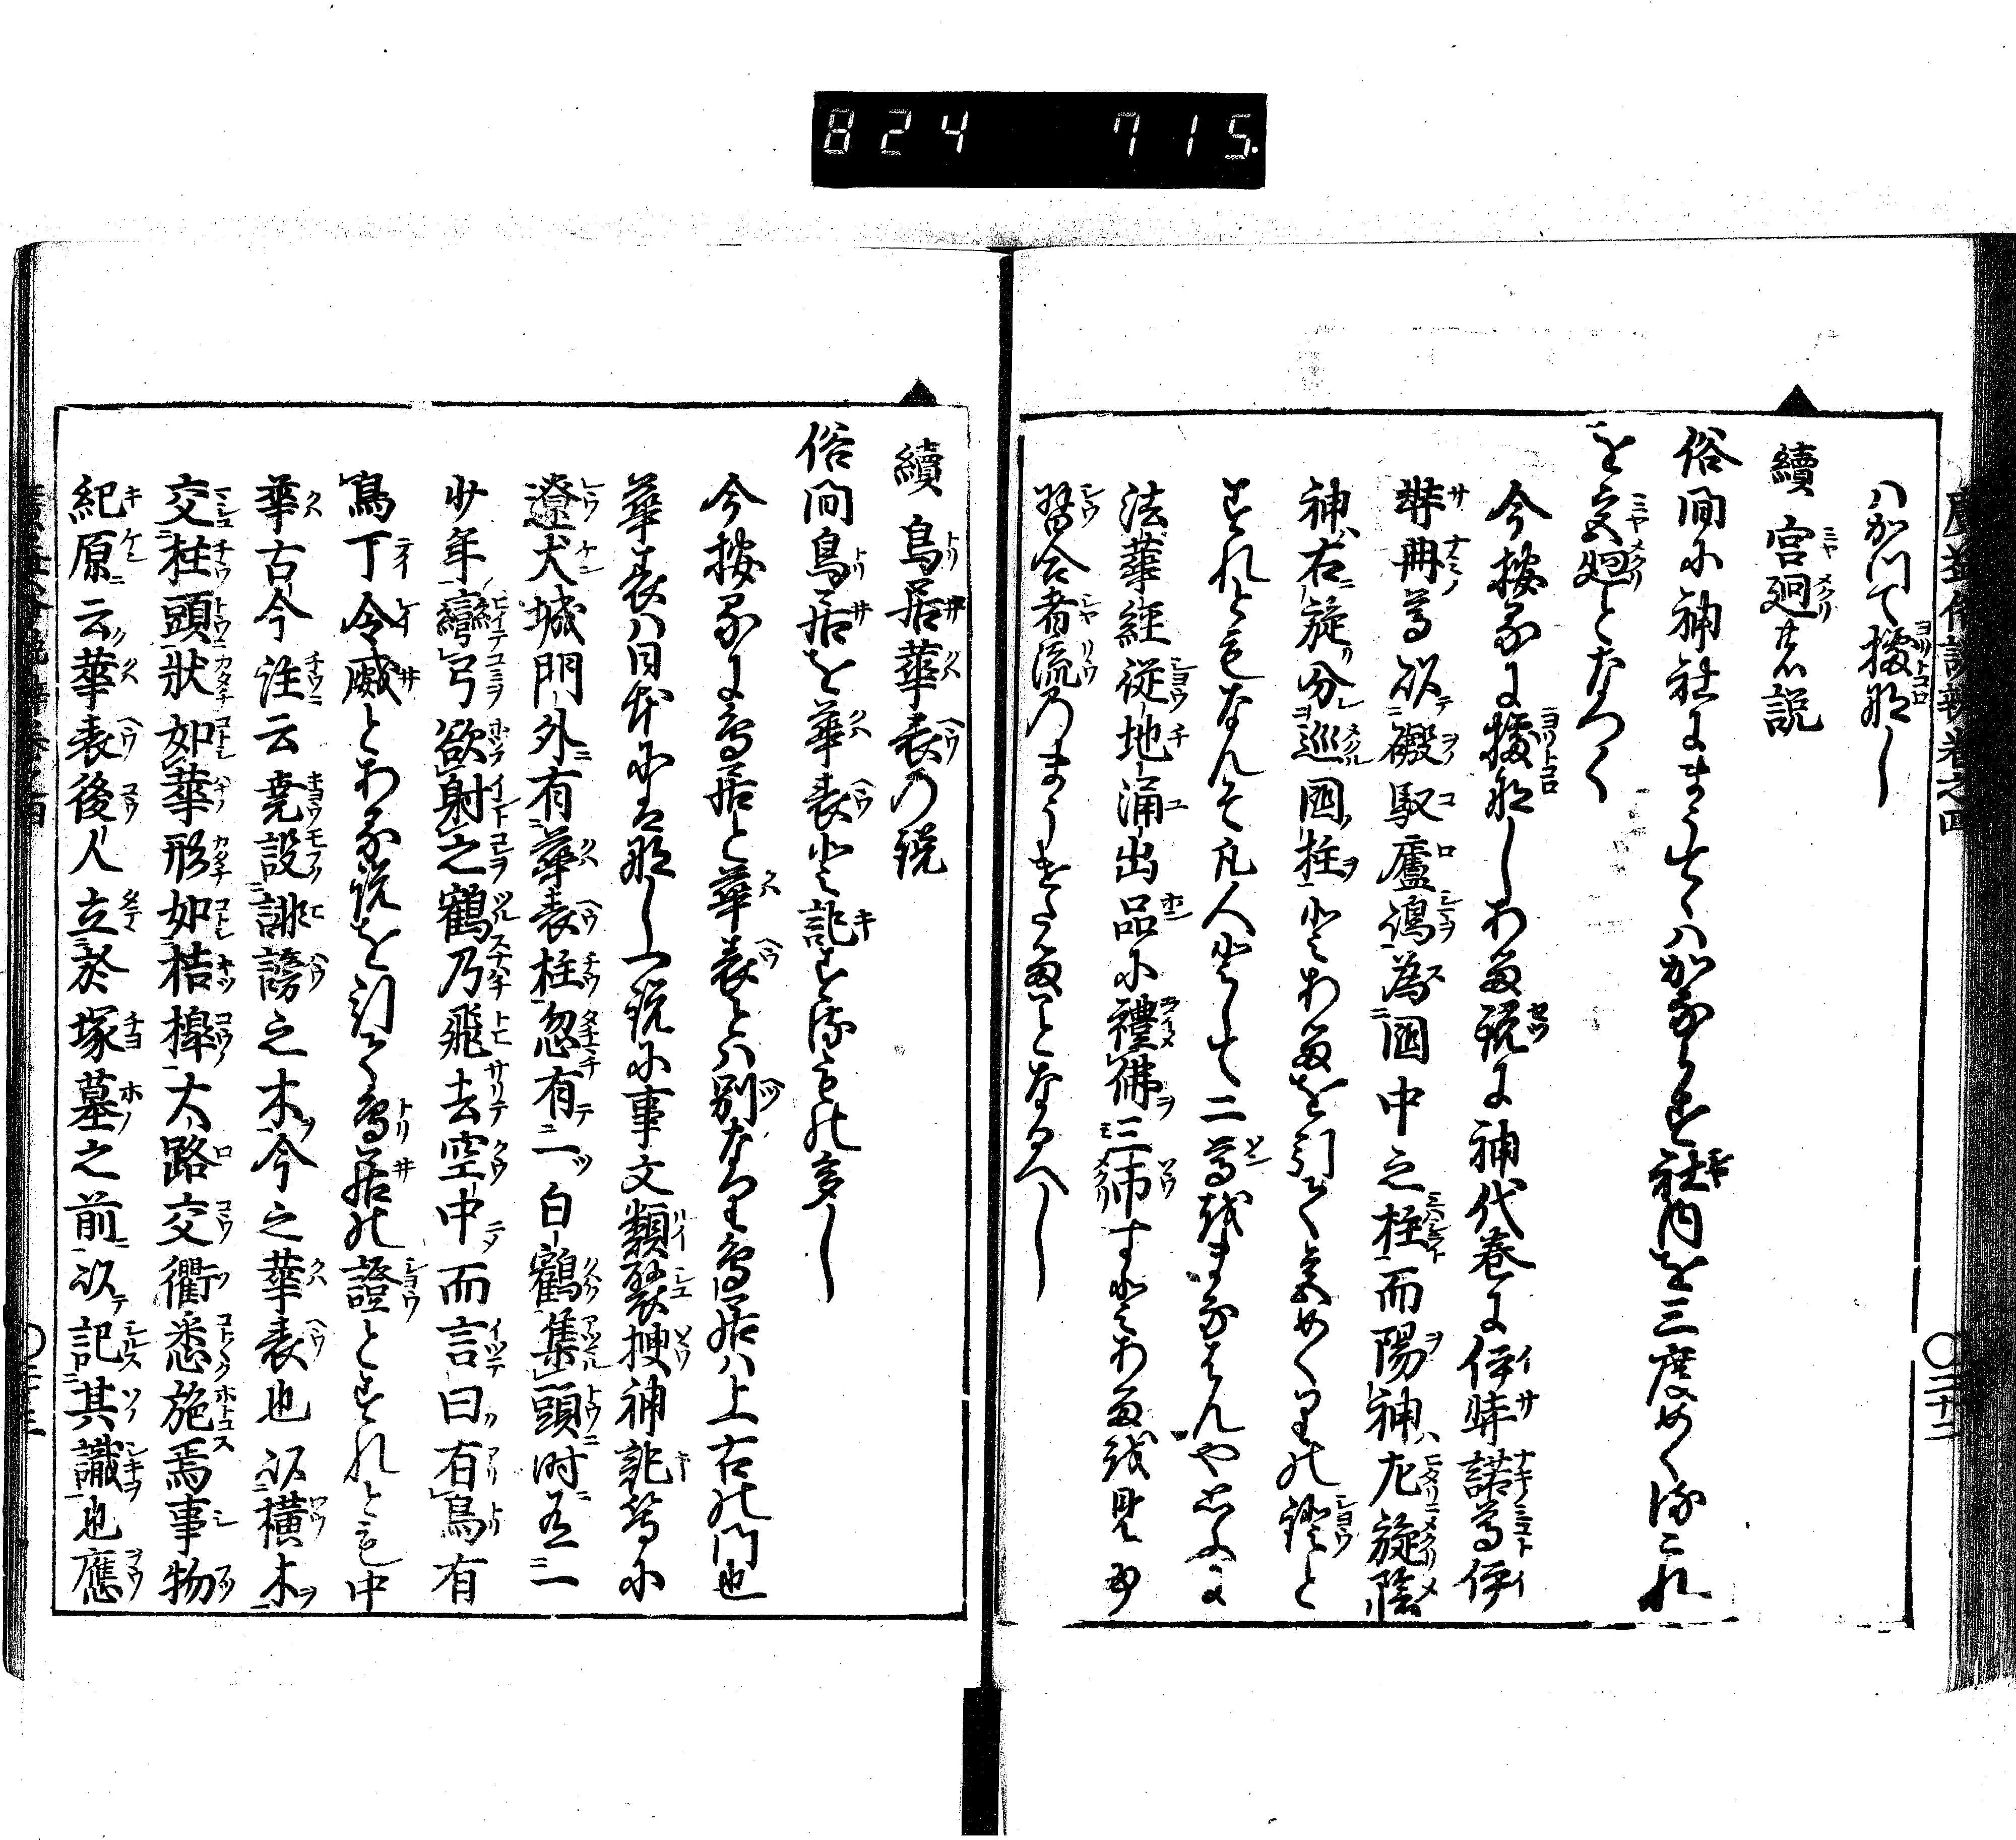 824 715
廣益俗説辨 卷之四
ハかつて據なし
續 宮廻の説
俗間に神社にまうずれハかならず社内を三度めくるこれ
を宮廻となつく
今按るに據なしある説に神代卷に伊弉諾尊伊
弉冉尊以磤馭廬嶋為國中之柱而陽神左旋陰
神右旋分巡國柱とあるを引て宮めくりの證と
すれどもなんそ凡人として二尊をまなはんやおもふに
法華經從地涌出品に禮佛三帀すとあるを見て
習合者流のまうけたることなるへし
〇二十二
續 鳥居華表の説
俗間鳥居を華表と訛するもの多し
今按るに鳥居と華表とハ別なり鳥居ハ上古の門也
華表ハ日本にはなし一説に事文類聚搜神記等に
遼犬城門外有華表柱忽有二白鶴集頭時有二
少年彎弓欲射之鶴乃飛去空中而言曰有鳥有
鳥丁令威とある説を引て鳥居の證とすれとも中
華古今注云堯設誹謗之木今之華表也以橫木
交柱頭狀如華形如桔槹大路交衢悉施焉事物
紀原云華表後人立於塚墓之前以記其識也應